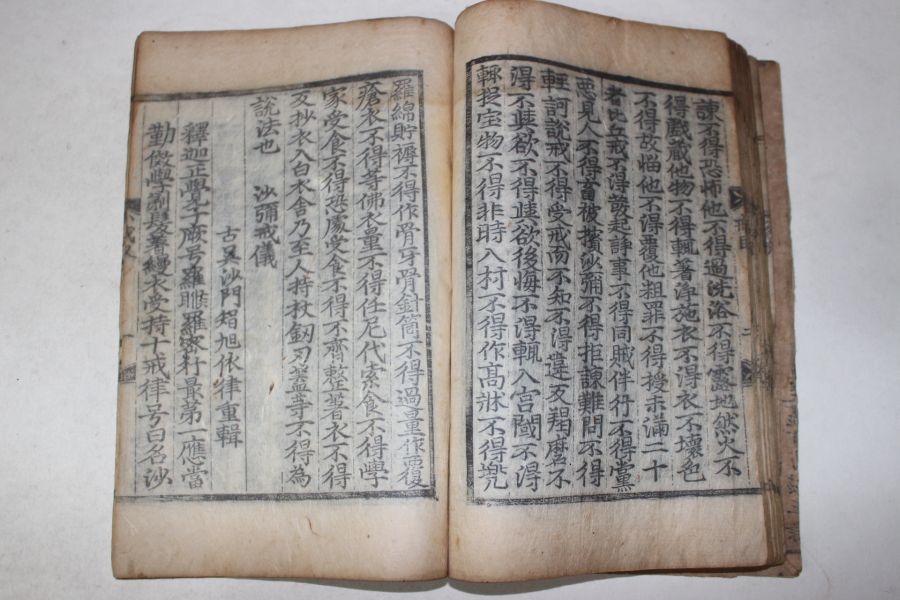 諫不得恐怖他不得過洗浴不得露地然火不
得戲藏他物不得輒著淨施衣不得衣不壞色
不得故惱他不得覆他粗罪不得授未滿二十
者比丘戒不得發起諍事不得同賊伴行不得黨
惡見人不得畜被擯沙彌不得拒諫難問不得
輕訶說戒不得受戒而不知不得違反羯磨不
得不與欲不得與欲後悔不得輒入宮閾不得
輒捉宝物不得非時入村不得作高牀不得兜
羅綿貯褥不得作骨牙骨針筒不得過量作覆
瘡衣不得等佛衣量不得任尼代索食不得學
家受食不得恐處受食不得不齊整著衣不得
反抄衣入白衣舍乃至人持杖釰刃蓋等不得為
說法也 沙彌戒儀
古吳沙門智旭依律重輯
釋迦正學兒子厥号羅睺羅密行最第一應當
勤倣學剃髮著縵衣受持十戒律号曰名沙